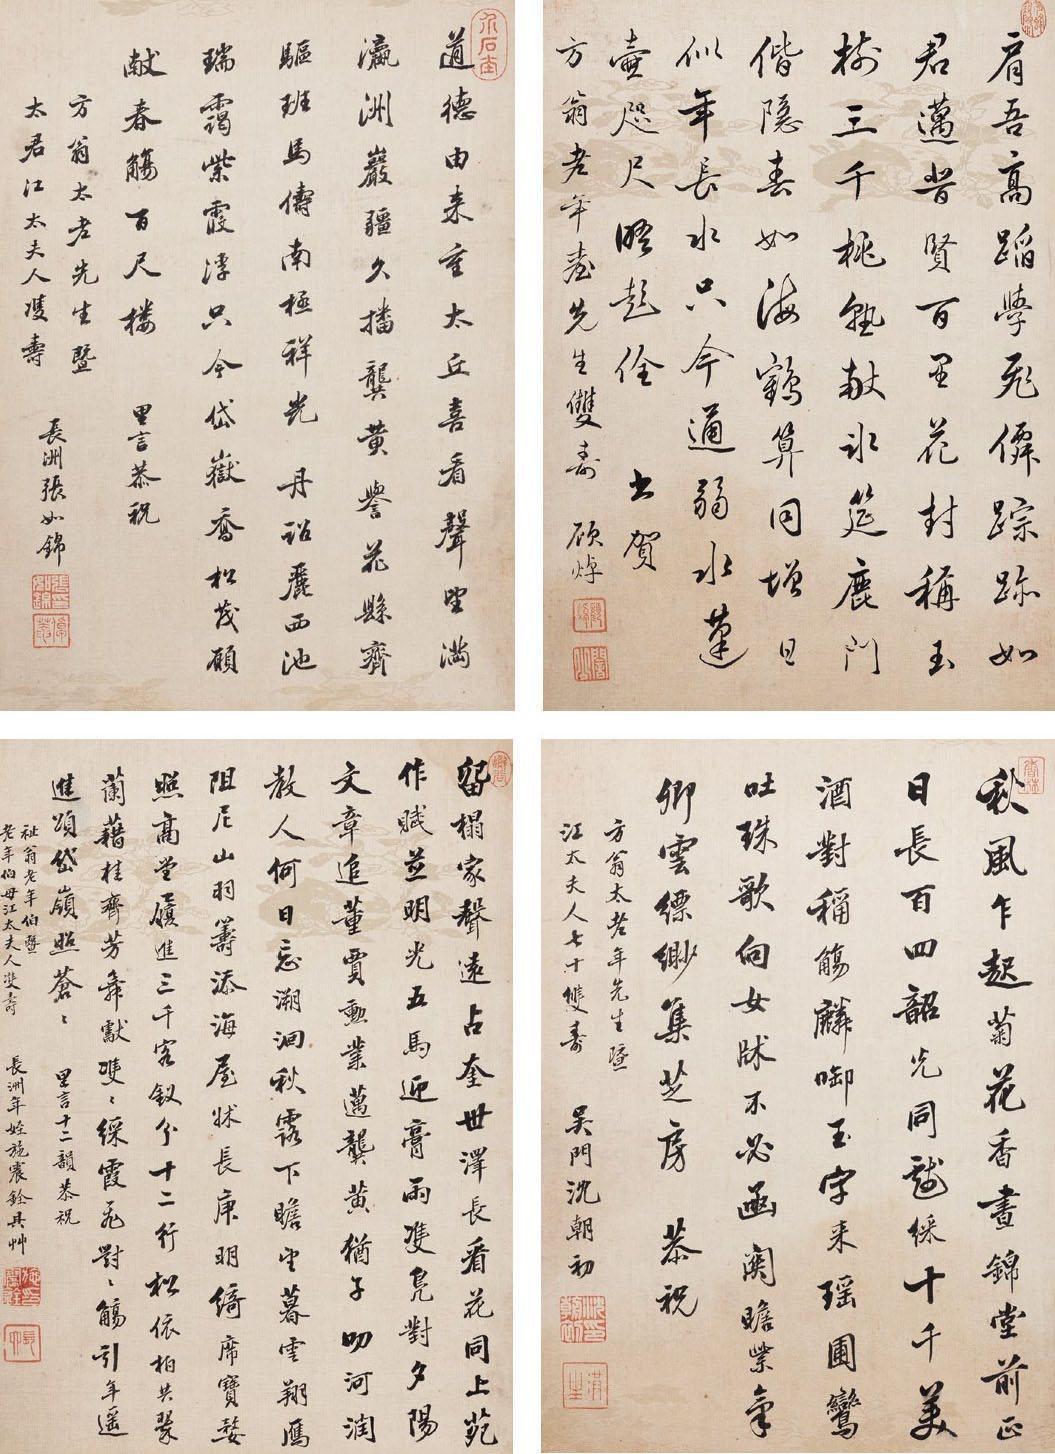 肩吾高蹈學飛僊踪跡如
君邁昔賢百里花封稱玉
樹三千桃熟敞氷筵鹿門
偕隱春如海鶴算同增日
似年長水只今通弱水蓬
壺咫尺晤起佺 賀
方翁老年臺先生雙壽 顧焯
道德由来重太丘喜看聲望滿
瀛洲巖疆久播龔黄譽花縣齊
驅班馬儔南極祥光 丹詔麗西池
瑞靄紫霞浮只今岱嶽喬松茂願
献春觴百尺楼 里言恭祝
方翁太老先生暨
太君江太夫人雙壽
長洲張如錦
秋風乍起菊花香晝錦堂前正
日長百四韶光同戲綵十千美
酒對稱觴麟啣玉字来瑶圃鸞
吐珠歌向女牀不必函關瞻紫氣
卿雲縹緲集芝房 恭祝
方翁太老年先生暨
江太夫人七十雙壽 吴門沈朝初
留榻家聲遠占奎世澤長看花同上苑
作賦並明光五馬迎膏雨雙鳬對夕陽
文章追董賈勳業邁龔黄猶子叨河潤
教人何日忘溯洄秋露下瞻望暮雲翔雁
阻尼山羽籌添海屋牀長庚明綺席寶婺
照高堂履進三千客釵分十二行松依柏共翠
蘭藉桂齊芳舞獻雙〻綵霞飛對〻觴引年遥
進頌岱嶺照蒼〻 里言十二韻恭祝
祉翁老年伯暨
老年伯母江太夫人雙壽
長洲年姪施震銓具艸